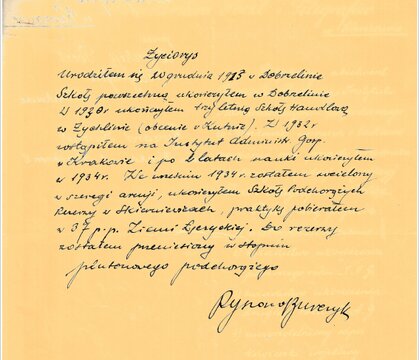 Życiorys
Urodziłem się 20 grudnia 1913 w Dobrzelinie
Szkołę powszechną ukończyłem w Dobrzelinie
W 1930r ukończyłem trzyletnią Szkołę Handlową
w Żychlinie (obecnie w Kutnie). W 1932r
wstąpiłem na Instytut Administr. Gosp.
w Krakowie i po 2 latach nauki ukończyłem
w 1934r. We wrześniu 1934r. zostałem wcielony
w szeregi armji, ukończyłem Szkołę Podchorążych
Rezerwy w Skierniewicach, praktykę pobierałem
w 37 p.p. Ziemi Łęczyckiej. Do rezerwy
zostałem przeniesiony w stopniu
plutonowego podchorążego